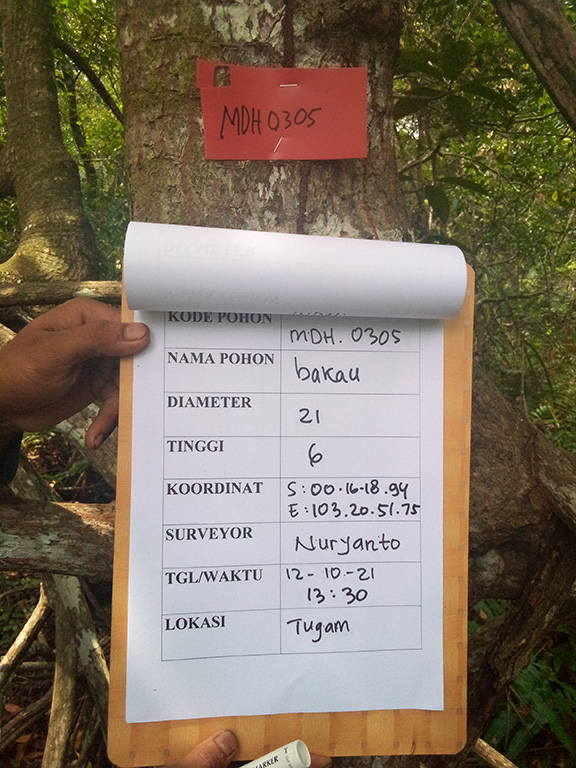 MDH 0305
KODE POHON
MDH. 0305
NAMA POHON
bakau
DIAMETER
21
TINGGI
6
KOORDINAT
S : 00.16.18.94
E : 103.20.51.75
SURVEYOR
Nuryanto
TGL/WAKTU
12-10-21
13 : 30
LOKASI
Tugam
MARKER